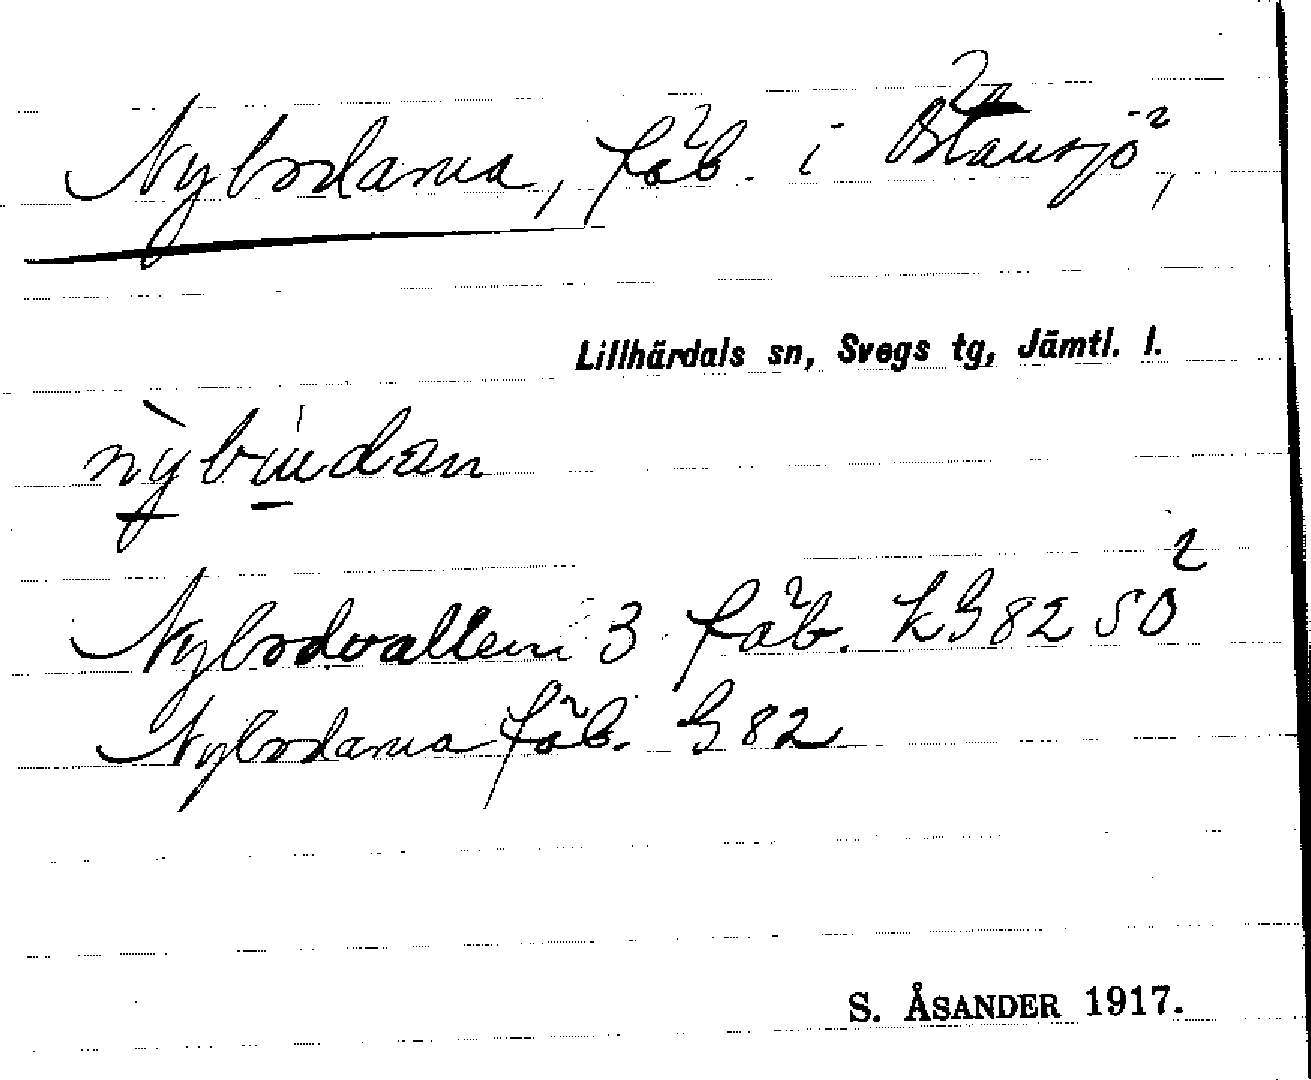 Nybodarna, fäb. i Östansjö,
Lillhärdals sn, Svegs tg, Jämtl. l.
Nybodvallen 3 fäb. LG82 SO
Nybodarna fäb. G82
S. ÅSANDER 1917.